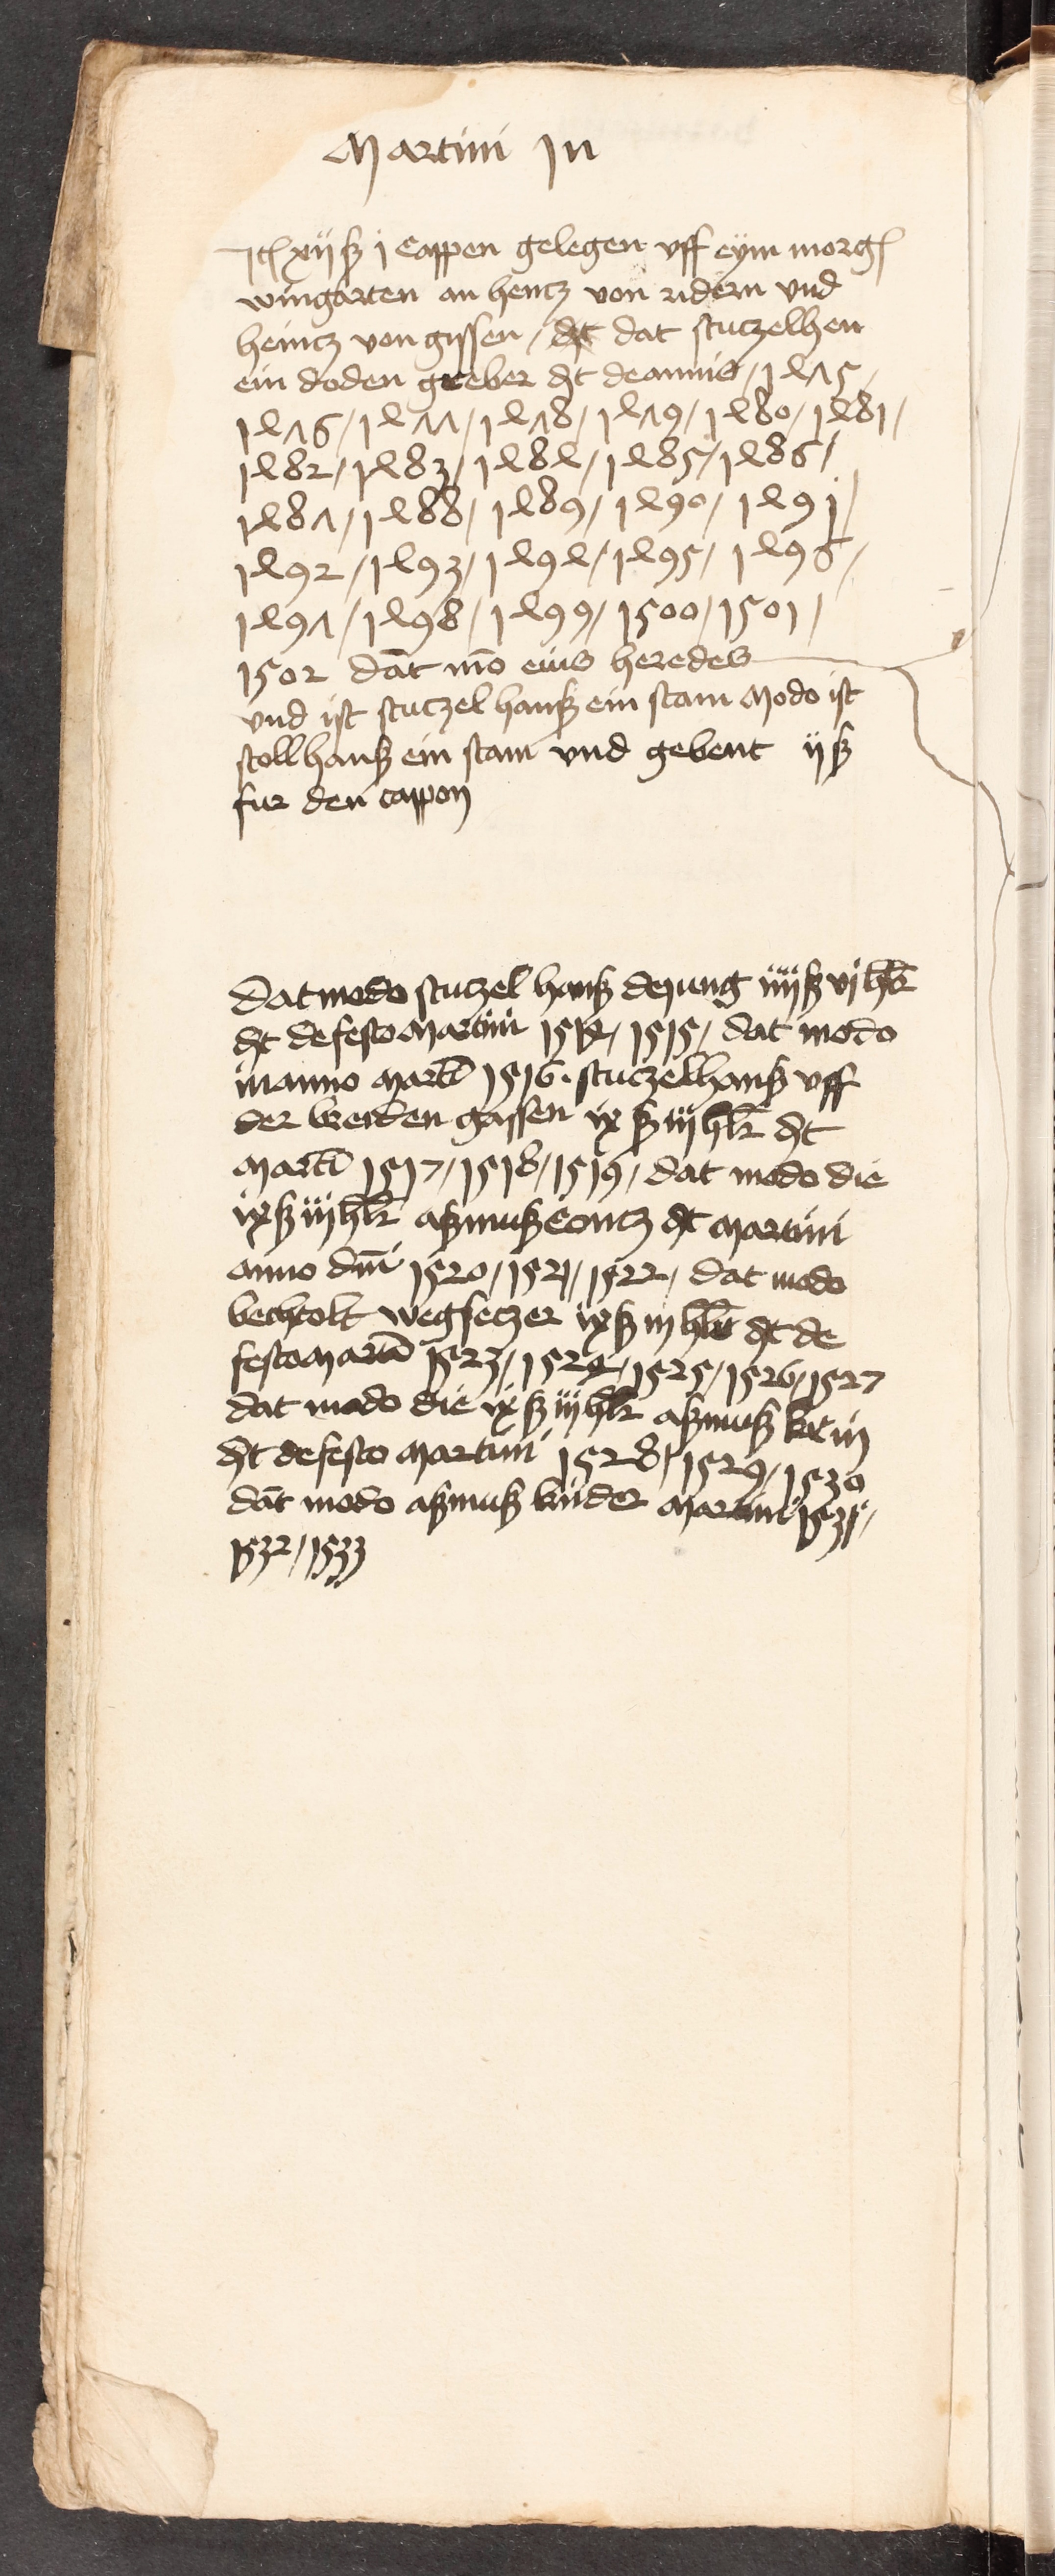 Martini In
Itē xij ß j Cappen gelegen vff eym morgē
wingarten an hentz von ridern vnd
heintz von gissen / dt dat stutzelhen
ein doden greber dt de annis / 1475 /
1476 / 1477 / 1478 / 1479 / 1480 / 1481 /
1482 / 1483 / 1484 / 1485 / 1486 /
1487 / 1488 / 1489 / 1490 / 1491 /
1492 / 1493 / 1494 / 1495 / 1496 /
1497 / 1498 / 1499 / 1500 / 1501 /
1502 dāt mō eius heredes
vnd ist stutzel hanß ein stam Modo ist
stoll hanß ein stam vnd gebent ij ß
fur den cappon
Dat modo stutzel hanß de jung iiij ß vj hlr
dt de festo Martini 1514 / 1515 / dat modo
in anno Martī 1516 . stutzelhanß vff
der weiden gassen ix ß iij hlr dt
Martī 1517 / 1518 / 1519 / dat modo die
ix ß iij hlr aßmuß Contz dt Martini
anno dm̄i 1520 / 1521 / 1522 / dat modo
bechtolt wegsetzer ix ß iij hlr dt de
festo Martī 1523 / 1524 / 1525 / 1526 / 1527
dat modo die ix ß iij hlr aßmuß
dt de festo Martini 1528 / 1529 / 1530
dāt modo aßmuß kinder Martini 1531 /
1532 / 1533